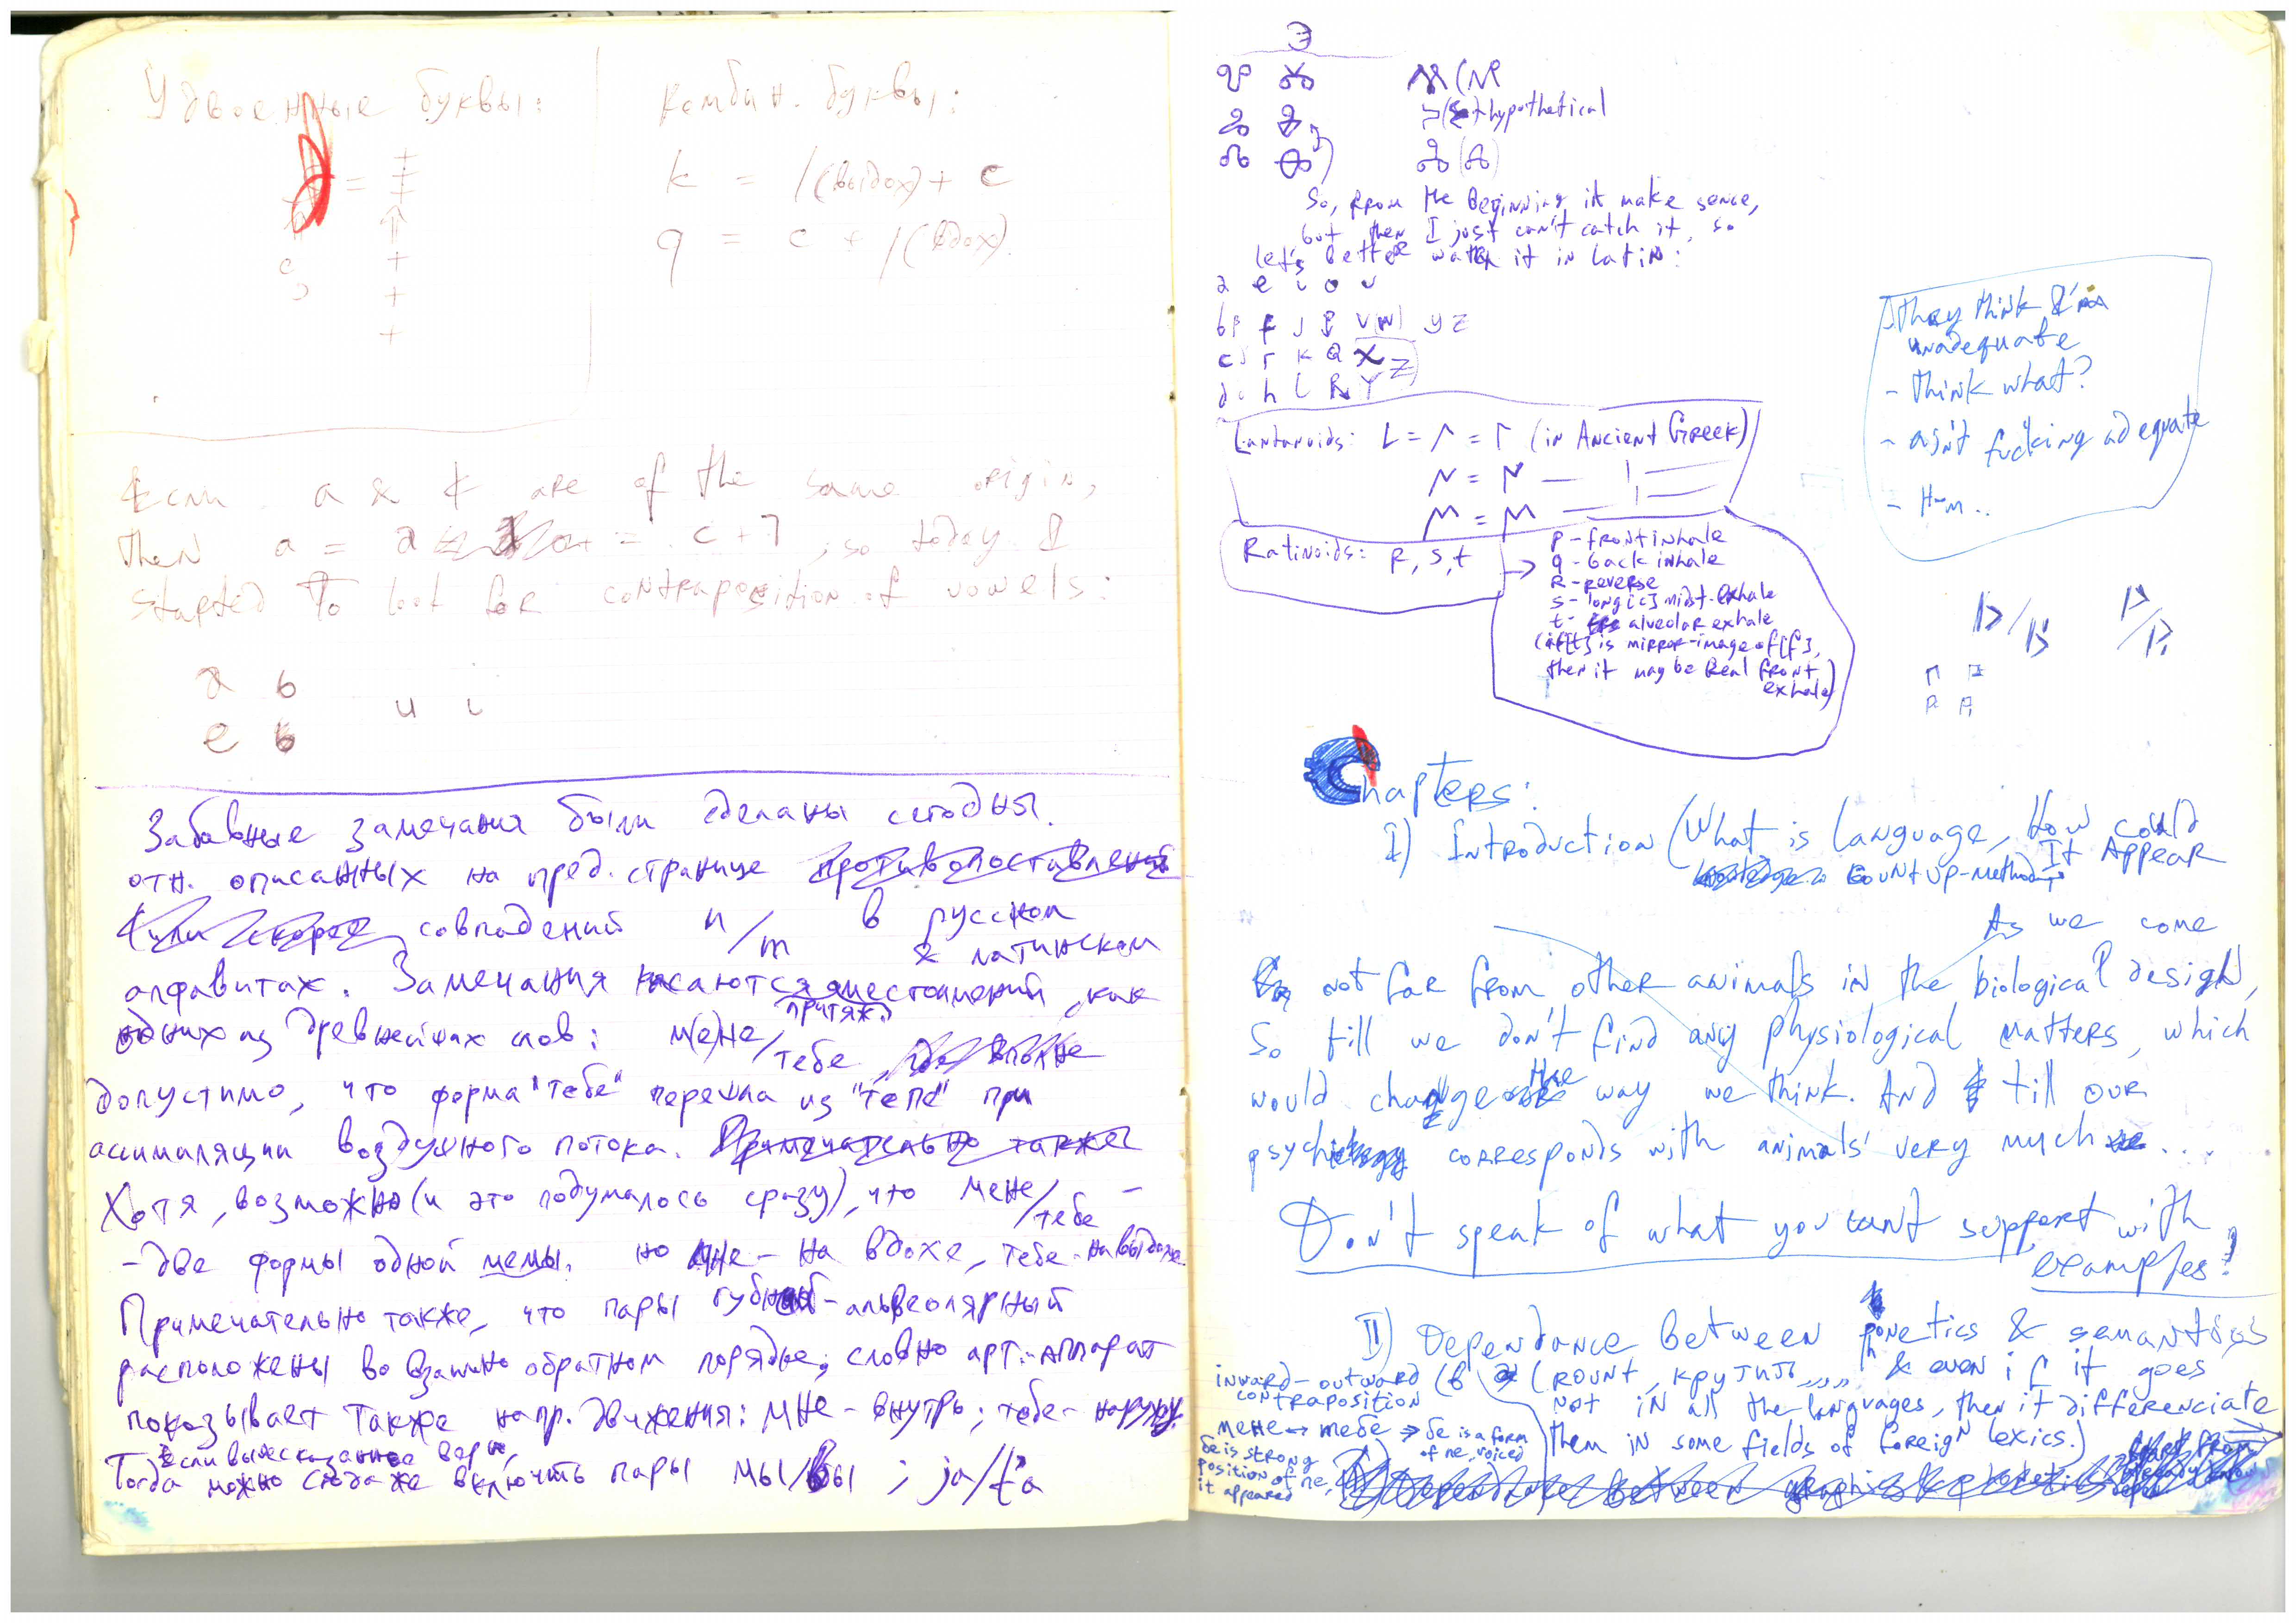 Удвоенные буквы:
=
c
+
+
+
Комбин. буквы:
k = /(выдох) + c
q = c + /(вдох).
Если a & & are of the same origin,
then a = a = c + 7, so today I
started to look for contraposition of vowels:
a b
e b
u i
Забавные замечания были сделаны сегодны.
отн. описанных на пред. странице противопоставлений
(или скорее совпадений п/т в русском
& латинском
алфавитах. Замечания касаются местоимений, как
притяж.
одних из древнейших слов: м(е)не/тебе, вполне
допустимо, что форма "тебе" перешла из "тепе" при
ассимиляции воздушного потока. Примечательно также
Хотя, возможно (и это подумалось сразу), что мене/тебе -
- две формы одной мемы. но мне - на вдохе, тебе - на выдохе.
Примечательно также, что пары губной-альвеолярный
расположены во взаимно обратном порядке; словно арт. аппарат
показывает также напр. движения: мне - внутрь; тебе - наружу.
если вышесказанное верно,
Тогда можно сюда же включить пары мы/вы ; ja/ta
Э
hypothetical
So, from the beginning it make sence,
but then I just can't catch it, so
let's better watch it in latin:
a e i o u
bp f j p v(w) y z
c r k Q X Z
d h l R Y
Lantanoids: L = Λ = Γ (in Ancient Greek)
N = N —
M = M —
Ratinoids: R, s, t
p - front inhale
q - back inhale
R - reverse
s - long [c] midst-exhale
t - alveolar exhale
(if [t] is mirror-image of [f],
then it may be Real front
exhale)
- They think I'm
unadequate
- think what?
- asn't fucking adequate
- H-m..
Chapters:
I) Introduction (What is language, How could
It Appear
Count up-method
As we come
not far from other animals in the biological design,
So till we don't find any physiological matters, which
would change the way we think. And till our
psych corresponds with animals' very much ...
Don't speak of what you can't support with
examples!
II) Dependance between phonetics & semantics
(rount, крутить,,,, & even if it goes
not in all the languages, then it differenciate
them in some fields of foreign lexics.)
inward-outward (в
contraposition
мене ↔ тебе => бе is a form
of пе, voiced
бе is strong
position of пе,
it appeared